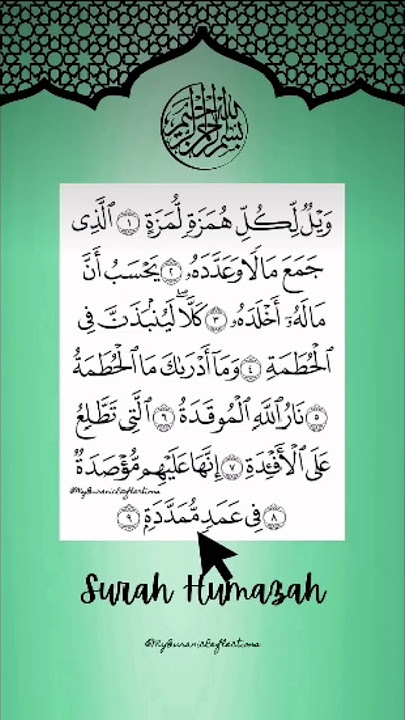 بسم الله الرحمن الرحيم
وَيْلٌ لِّكُلِّ هُمَزَةٍ لُّمَزَةٍ ١ ٱلَّذِى
جَمَعَ مَالًا وَعَدَّدَهُۥ ٢ يَحْسَبُ أَنَّ
مَالَهُۥٓ أَخْلَدَهُۥ ٣ كَلَّاۖ لَيُنۢبَذَنَّ فِى
ٱلْحُطَمَةِ ٤ وَمَآ أَدْرَىٰكَ مَا ٱلْحُطَمَةُ
٥ نَارُ ٱللَّهِ ٱلْمُوقَدَةُ ٦ ٱلَّتِى تَطَّلِعُ
عَلَى ٱلْأَفْـِٔدَةِ ٧ إِنَّهَا عَلَيْهِم مُّؤْصَدَةٌ
@MyQuranicReflections
٨ فِى عَمَدٍ مُّمَدَّدَةٍۭ ٩
Surah Humazah
@MyQuranicReflections